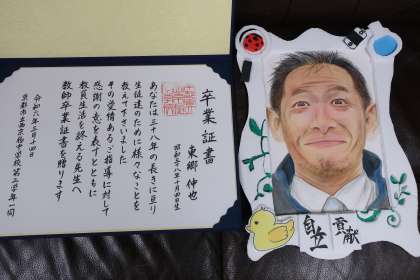 卒業証書
東郷伸也
昭和三八年十月四日生
あなたは三十八年の長きに亘り
生徒達のために様々なことを
教えて下さいました
その愛情あるご指導に対して
感謝の意を表すとともに
教員生活を終える先生へ
教師卒業証書を贈ります
令和六年三月十四日
京都市立西京極中学校第三学年一同
自立
貢献